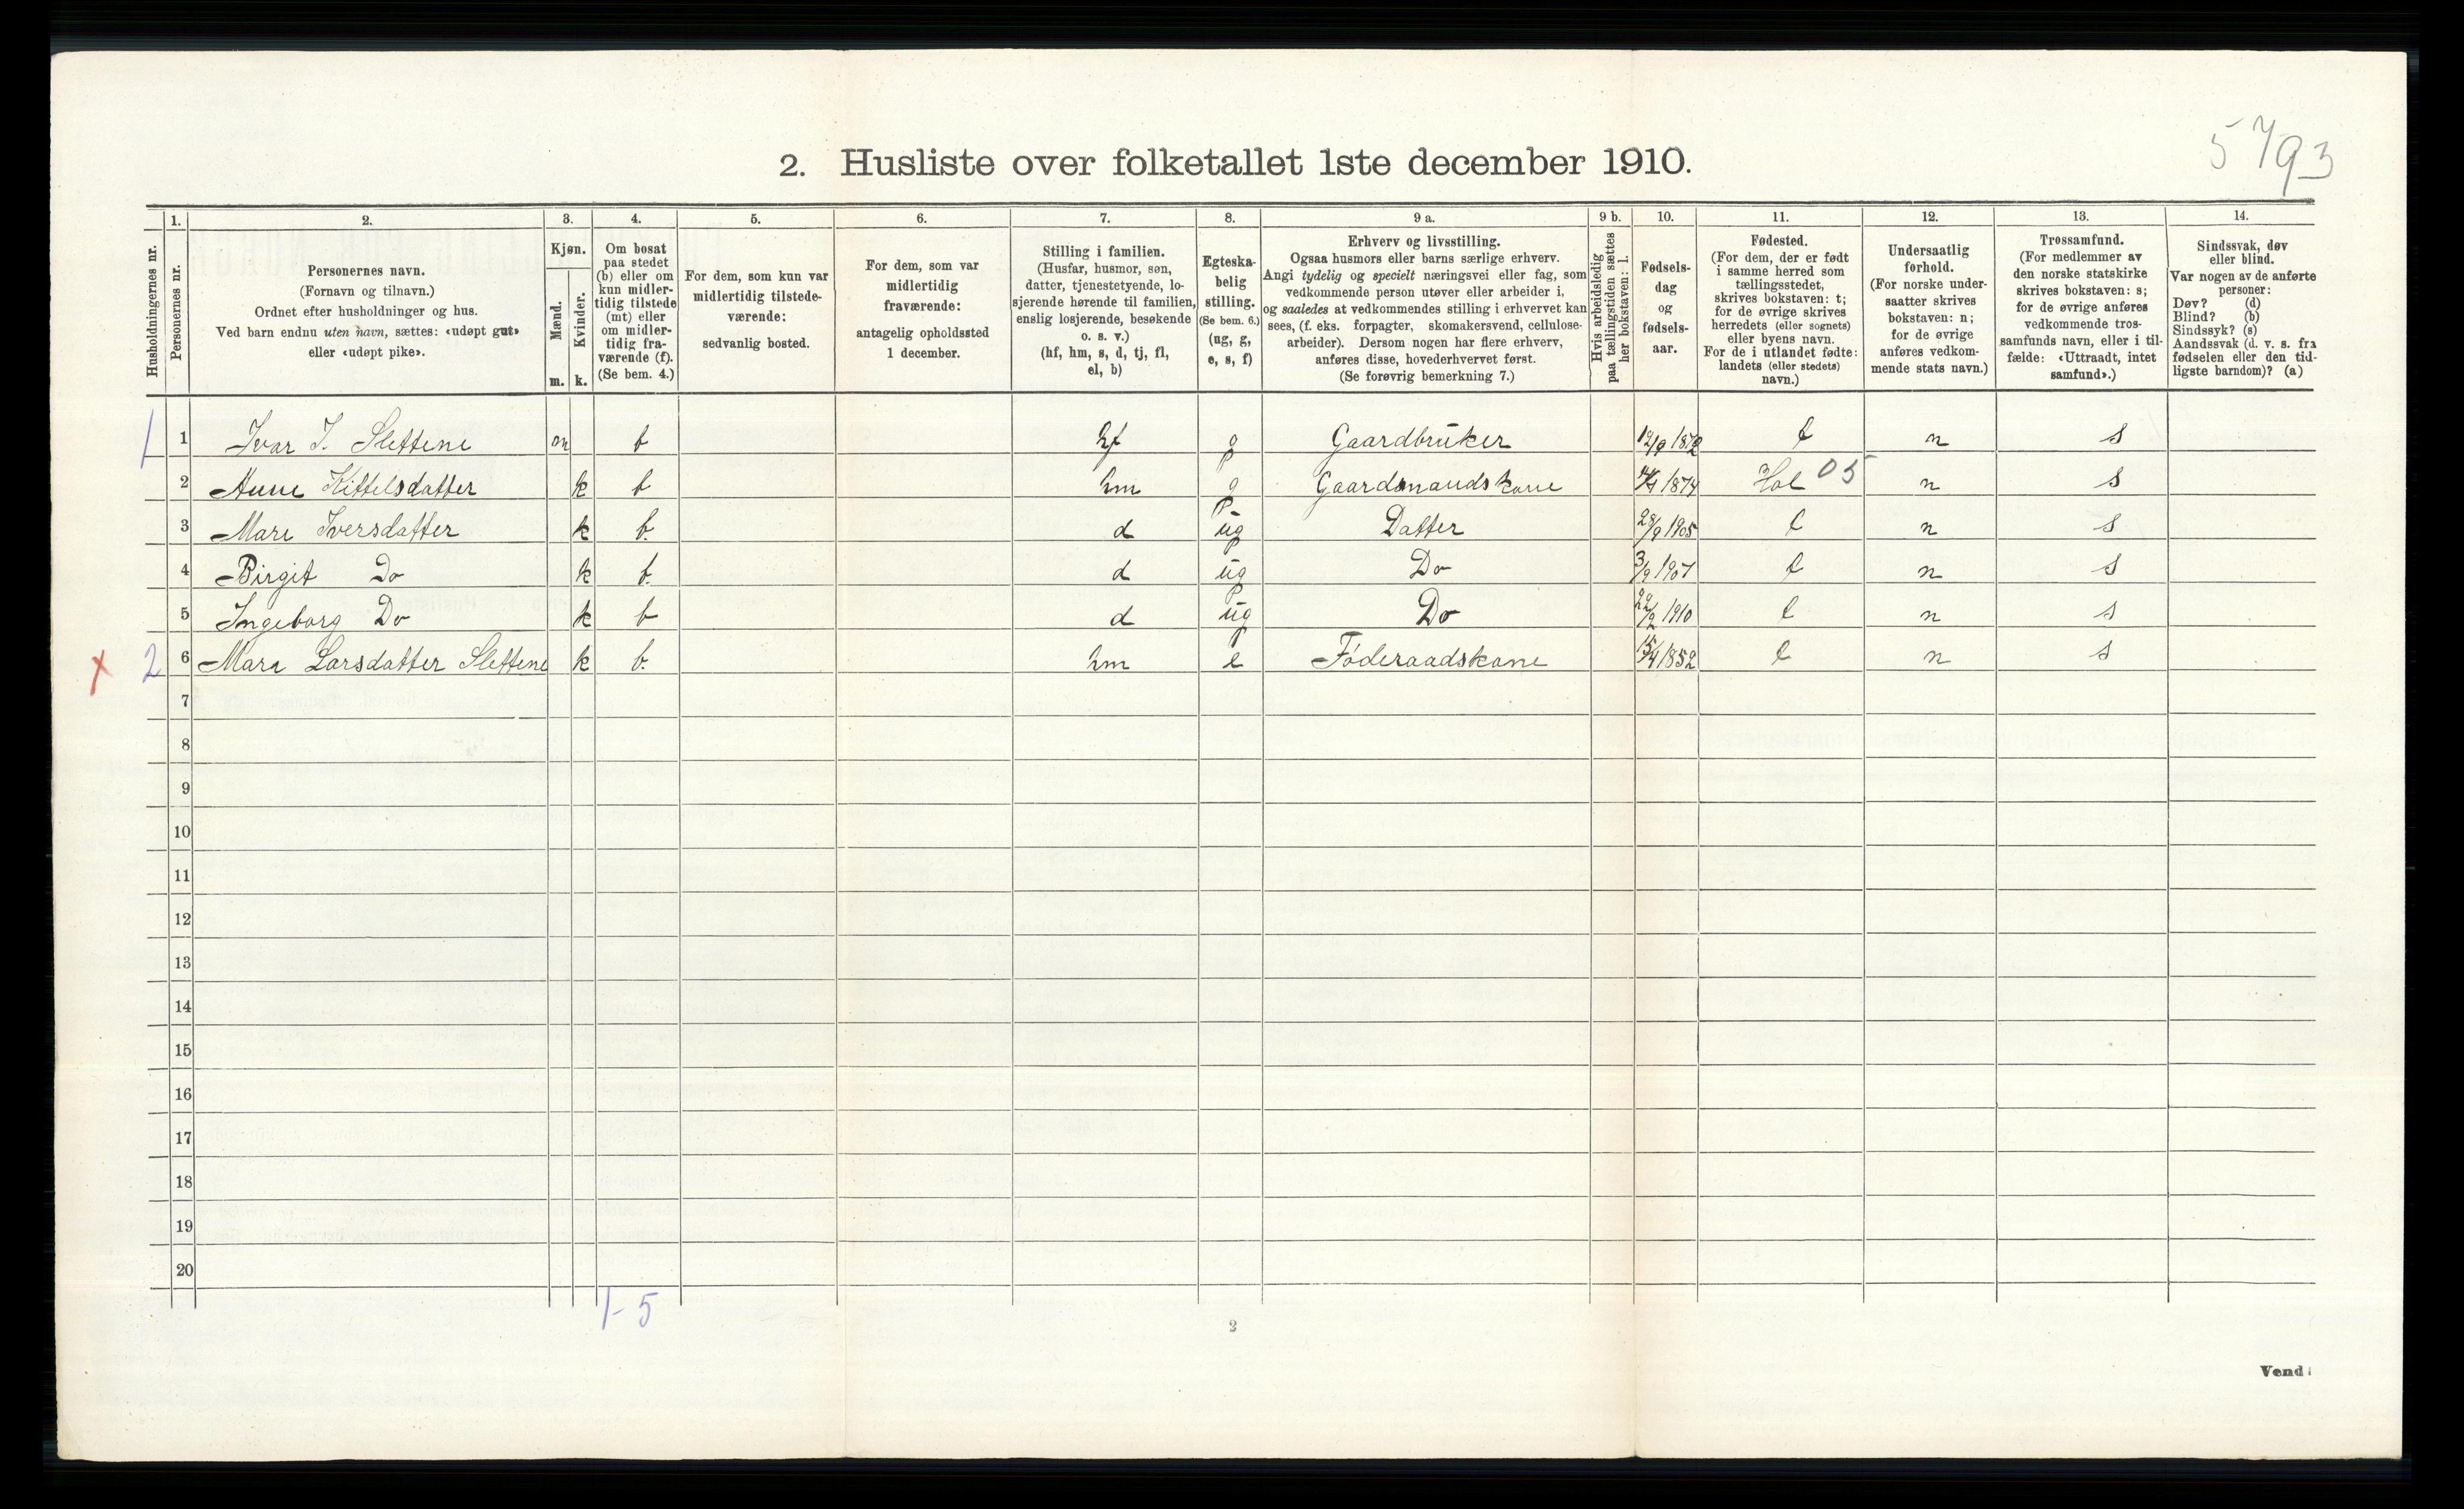 5793
2. Husliste over folketallet 1ste december 1910.
Husholdningernes nr.
1.
Personernes nr.
2.
Personernes navn.
(Fornavn og tilnavn.)
Ordnet efter husholdninger og hus.
Ved barn endnu uten navn, sættes: «udøpt gut»
eller «udøpt pike».
3.
Kjøn.
Mænd.
Kvinder.
m. k.
4.
Om bosat
paa stedet
(b) eller om
kun midler-
tidig tilstede
(mt) eller
om midler-
tidig fra-
værende (f).
(Se bem. 4.)
5.
For dem, som kun var
midlertidig tilstede-
værende:
sedvanlig bosted.
6.
For dem, som var
midlertidig
fraværende:
antagelig opholdssted
1 december.
7.
Stilling i familien.
(Husfar, husmor, søn,
datter, tjenestetyende, lo-
sjerende hørende til familien,
enslig losjerende, besøkende
o. s. v.)
(hf, hm, s, d, tj, fl,
el, b)
8.
Egteska-
belig
stilling.
(Se bem. 6.)
(ug, g,
e, s, f)
9 a.
Erhverv og livsstilling.
Ogsaa husmors eller barns særlige erhverv.
Angi tydelig og specielt næringsvei eller fag, som
vedkommende person utøver eller arbeider i,
og saaledes at vedkommendes stilling i erhvervet kan
sees, (f. eks. forpagter, skomakersvend, cellulose-
arbeider). Dersom nogen har flere erhverv,
anføres disse, hovederhvervet først.
(Se forøvrig bemerkning 7.)
9 b.
Hvis arbeidsledig
paa tællingstiden sættes
her bokstaven: l.
10.
Fødsels-
dag
og
fødsels-
aar.
11.
Fødested.
(For dem, der er født
i samme herred som
tællingsstedet,
skrives bokstaven: t;
for de øvrige skrives
herredets (eller sognets)
eller byens navn.
For de i utlandet fødte:
landets (eller stedets)
navn.)
12.
Undersaatlig
forhold.
(For norske under-
saatter skrives
bokstaven: n;
for de øvrige
anføres vedkom-
mende stats navn.)
13.
Trossamfund.
(For medlemmer av
den norske statskirke
skrives bokstaven: s;
for de øvrige anføres
vedkommende tros-
samfunds navn, eller i til-
fælde: «Uttraadt, intet
samfund».)
14.
Sindssvak, døv
eller blind.
Var nogen av de anførte
personer:
Døv? (d)
Blind? (b)
Sindssyk? (s)
Aandssvak (d. v. s. fra
fødselen eller den tid-
ligste barndom)? (a)
1 1 Ivar I. Slettene m b hf g Gaardbruker 12/9 1872 t n s
2 Anne Kittelsdatter k b hm g Gaardmandskone 1874 Hol 05 n s
3 Mari Iversdatter k b. d ug Datter 28/9 1905 t n s
4 Birgit Do k b. d ug Do 3/9 1907 t n s
5 Ingeborg Do k b d ug Do 22/2 1910 t n s
x 2 6 Mari Larsdatter Slettene k b. hm e Føderaadskone 15/4 1852 t n s
7
8
9
10
11
12
13
14
15
16
17
18
19
20
1-5
2
Vend!